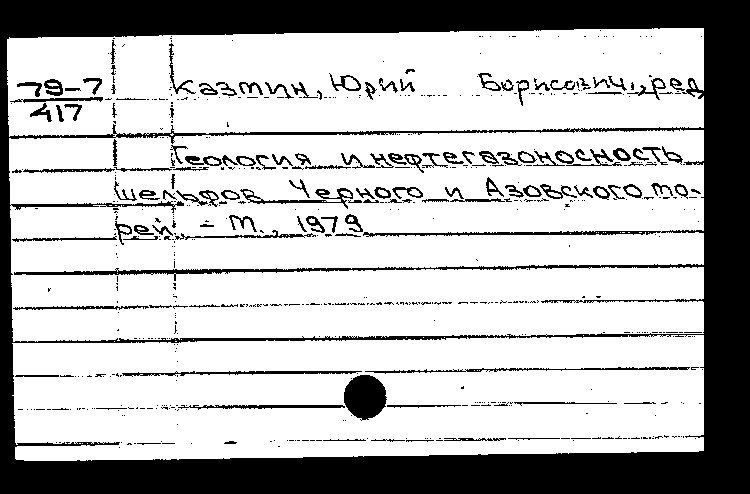 79-7 Казмин, Юрий Борисович, ред
417
Геология и нефтегазоносность
шельфов Черного и Азовского мо-
рей. - М., 1979